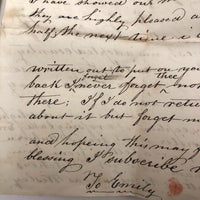 I have showed our m
they are highly pleased a
half the next time I
written out to put on you
forget thee
back I never forget
there; If I do not retur
about it but forget m
and hoping this may f
blessing I subscribe
To Emily